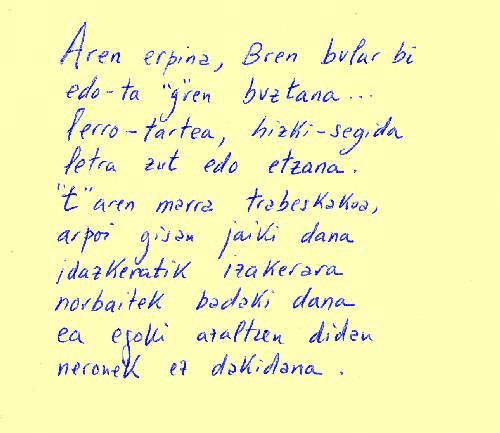 Aren erpina, Bren bular bi
edo-ta "g"ren buztana...
lerro-tartea, hizki-segida
letra zut edo etzana.
"t"aren marra trabeskakoa,
arpoi gisan jaiki dana
idazkeratik izakerara
norbaitek badaki dana
ea egoki azaltzen didan
neronek ez dakidana.